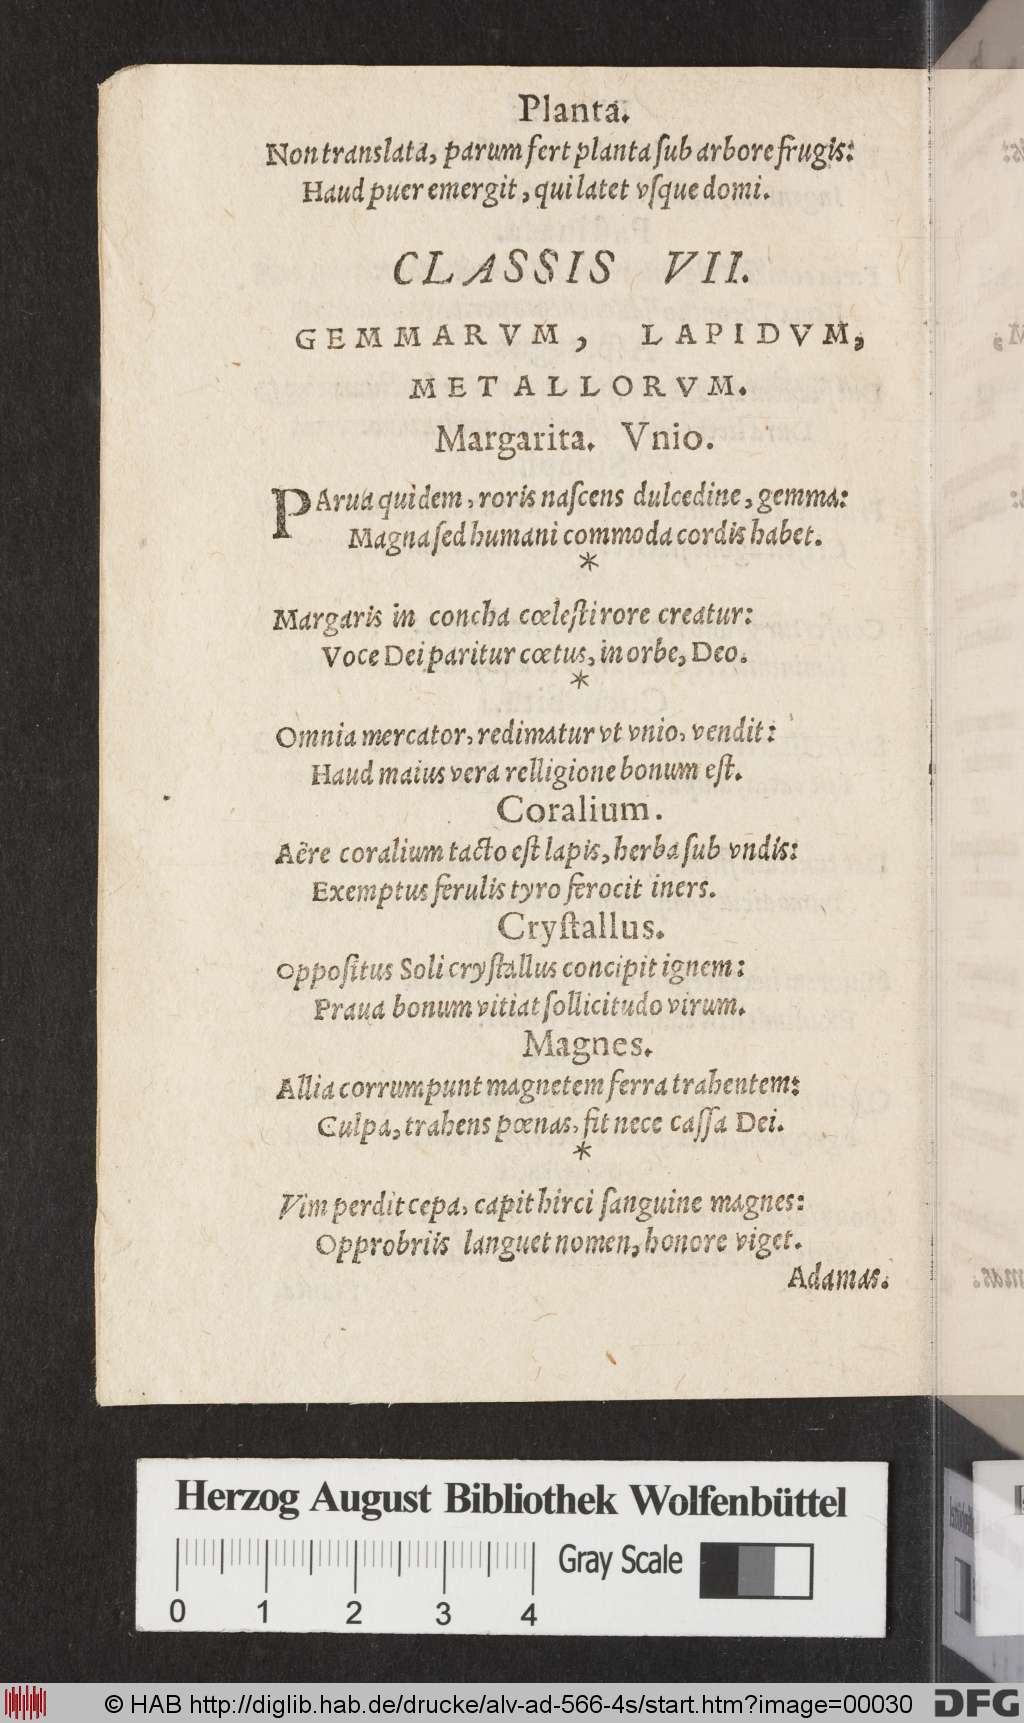 Planta.
Non translata, parum fert planta ſub arbore frugis:
Haud puer emergit, qui latet vſque domi.
CLASSIS VII.
GEMMARVM, LAPIDVM,
METALLORVM.
Margarita. Vnio.
PArua quidem, roris naſcens dulcedine, gemma:
Magna ſed humani commoda cordis habet.
*
Margaris in concha cœleſti rore creatur:
Voce Dei paritur cœtus, in orbe, Deo.
*
Omnia mercator, redimatur vt vnio, vendit:
Haud maius vera relligione bonum eſt.
Coralium.
Aëre coralium tacto eſt lapis, herba ſub vndis:
Exemptus ferulis tyro ferocit iners.
Cryſtallus.
Oppoſitus Soli cryſtallus concipit ignem:
Praua bonum vitiat ſollicitudo virum.
Magnes.
Allia corrumpunt magnetem ferra trahentem:
Culpa, trahens pœnas, fit nece caſſa Dei.
*
Vim perdit cepa, capit hirci ſanguine magnes:
Opprobriis languet nomen, honore viget.
Adamas.
Herzog August Bibliothek Wolfenbüttel
Gray Scale
0 1 2 3 4
© HAB http://diglib.hab.de/drucke/alv-ad-566-4s/start.htm?image=00030
DFG